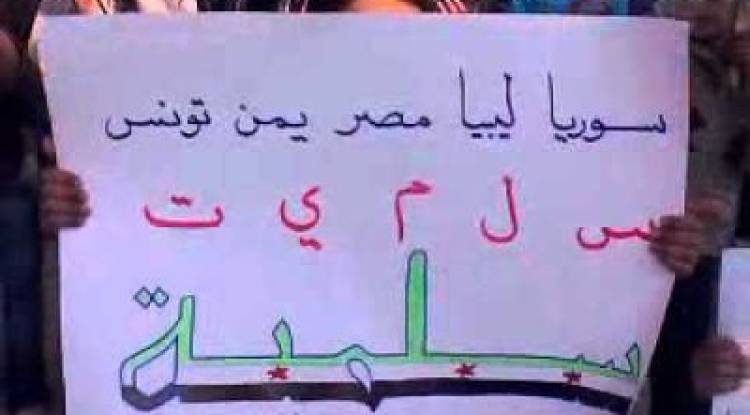 سوريا ليبيا مصر يمن تونس
س ل م ي ت
سلمية